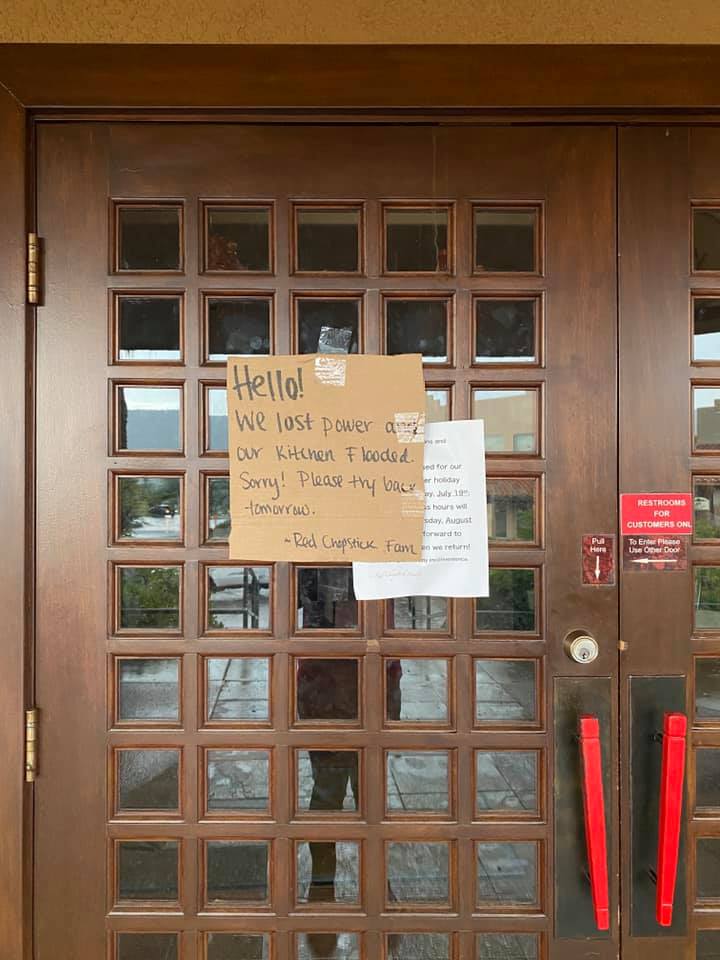 Hello!
We lost power and
our Kitchen Flooded.
Sorry! Please try back
tomorrow.
~Red Chopstick Fam
ns and
ed for our
er holiday
ay, July 19th
s hours will
sday, August
forward to
en we return!
ny inconvenience.
Pull
Here
RESTROOMS
FOR
CUSTOMERS ONL
To Enter Please
Use Other Door